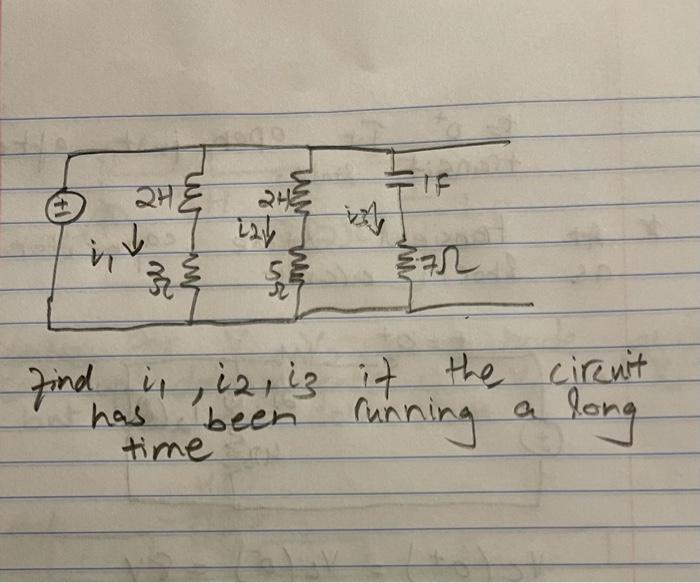 ±
2H
2H
1F
i1
i2
i3
3
Ω
5
Ω
7Ω
Find i1, i2, i3 if the circuit
has been running a long
time